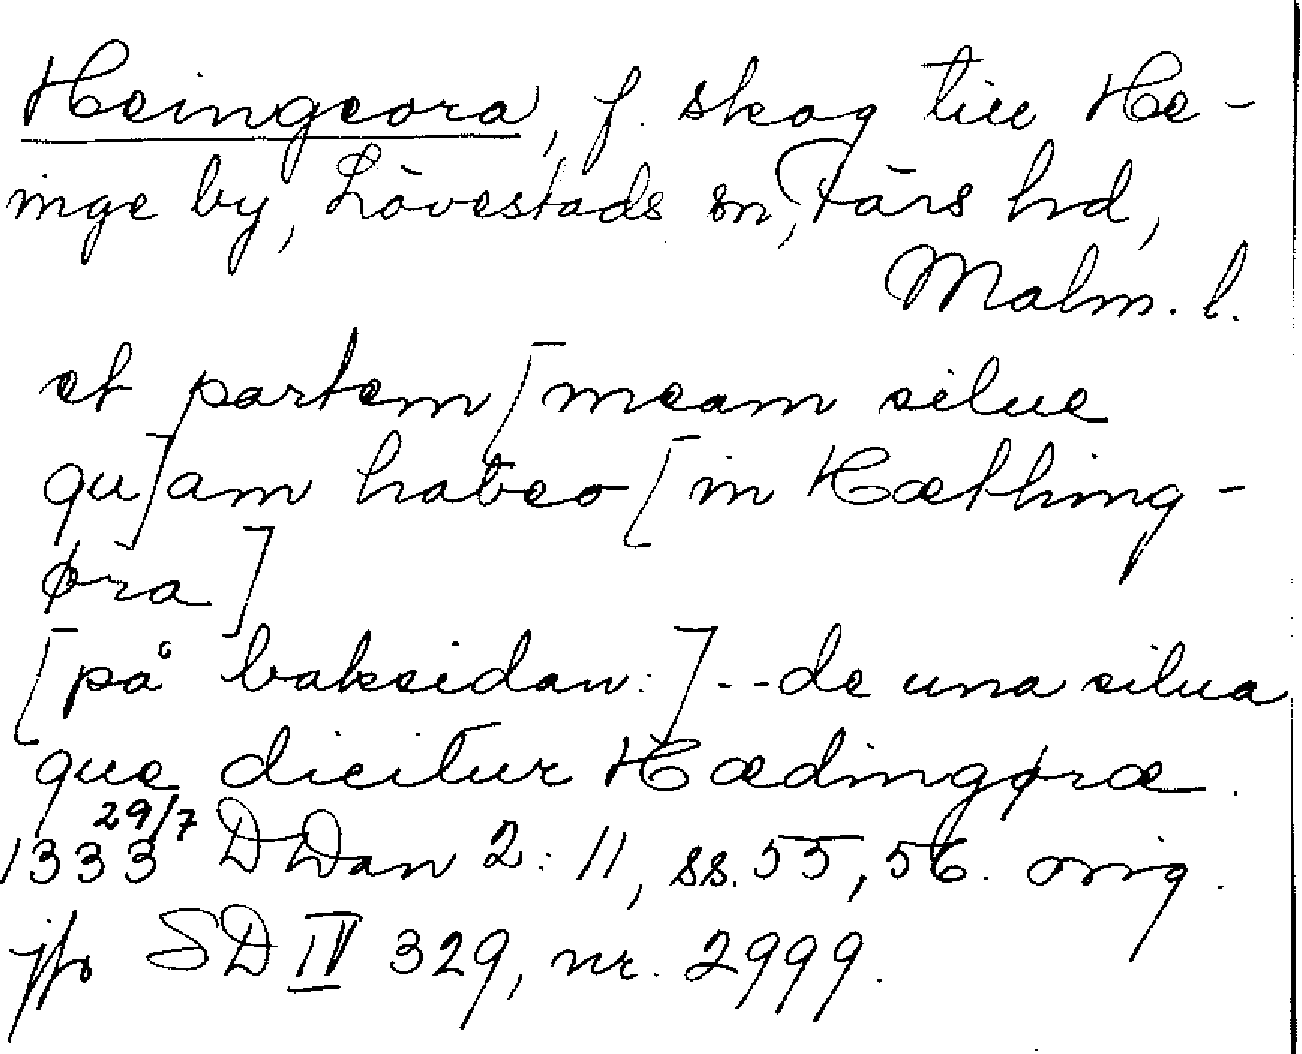 Heingeora, f. skog till He-
inge by, Lövestads sn, Färs hd,
Malm. l.
et partem [meam silue
qu]am habeo [in Hæthing-
øra]
[på baksidan:] -- de una silua
que dicitur Hædingøræ.
1333 29/7 DDan 2: 11, ss. 55, 56. orig.
jfr SD IV 329, nr. 2999.